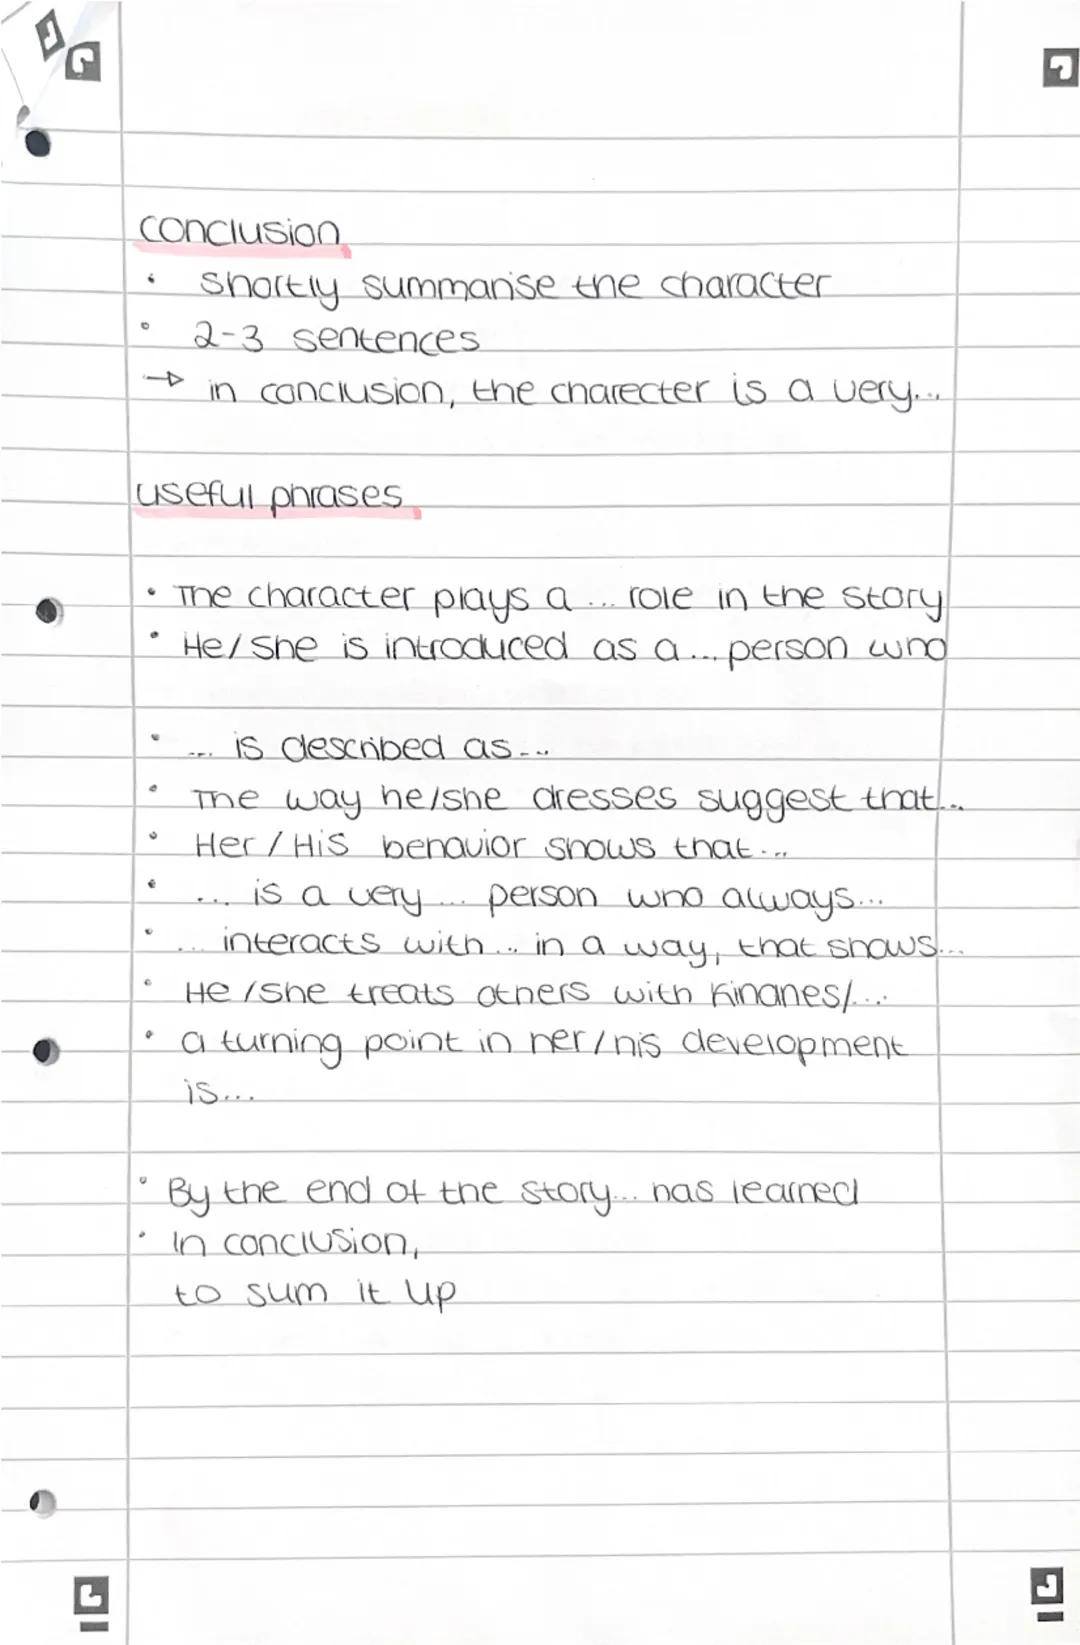 conclusion
• Shortly summarise the character
• 2-3 sentences
→ in conclusion, the charecter is a very...
useful phrases
• The character plays a ... role in the story
• He/She is introduced as a ... person who
• ... is described as...
• The way he/she dresses suggest that...
• Her / His behavior shows that ...
• ... is a very ... person who always...
• ... interacts with ... in a way, that shows...
• He /she treats others with kindnes/...
• a turning point in her/his development
is...
• By the end of the story... has learned
• In conclusion,
to sum it up